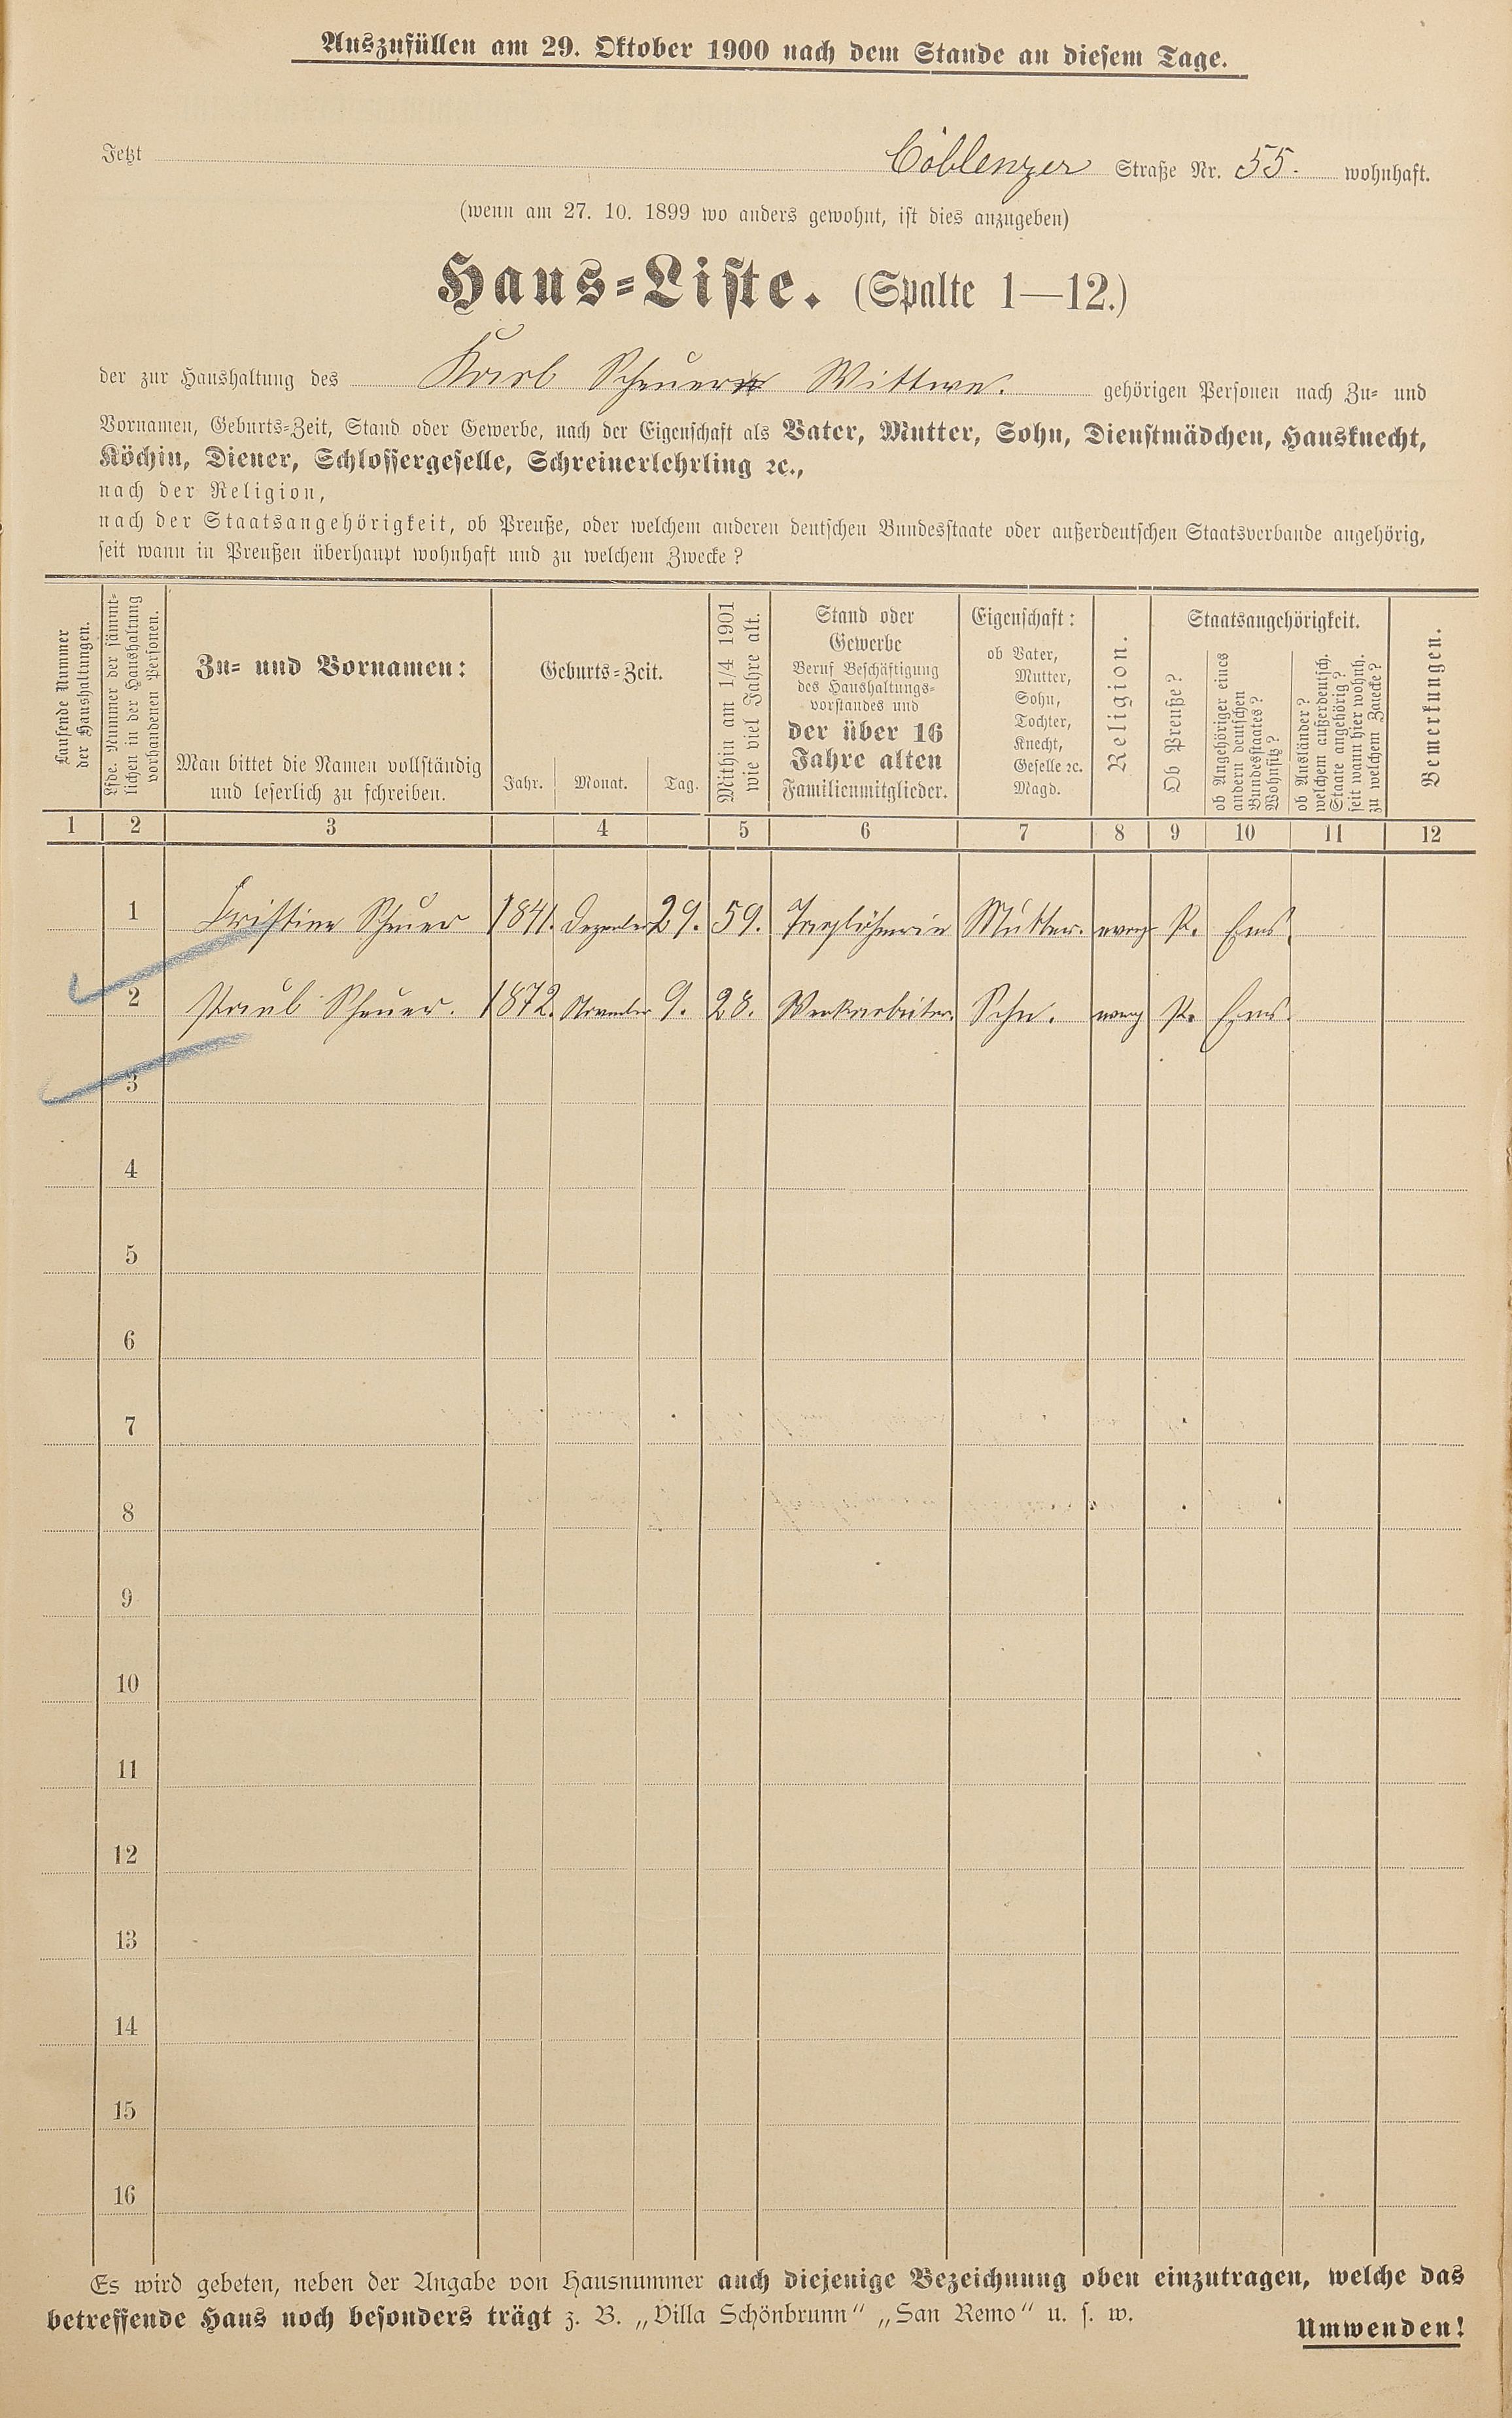 Auszufüllen am 29. Oktober 1900 nach dem Stande an diesem Tage.
Jetzt Coblenzer Straße Nr. 55. wohnhaft.
(wenn am 27. 10. 1899 wo anders gewohnt, ist dies anzugeben)
Haus-Liste. (Spalte 1—12.)
der zur Haushaltung des Karl Scheuer Wittwe. gehörigen Personen nach Zu- und
Vornamen, Geburts-Zeit, Stand oder Gewerbe, nach der Eigenschaft als Vater, Mutter, Sohn, Dienstmädchen, Hausknecht,
Köchin, Diener, Schlossergeselle, Schreinerlehrling ꝛc.,
nach der Religion,
nach der Staatsangehörigkeit, ob Preuße, oder welchem anderen deutschen Bundesstaate oder außerdeutschen Staatsverbande angehörig,
seit wann in Preußen überhaupt wohnhaft und zu welchem Zwecke?
Laufende Nummer
der Haushaltungen.
Lfde. Nummer der sämmt-
lichen in der Haushaltung
vorhandenen Personen.
Zu- und Vornamen:
Man bittet die Namen vollständig
und leserlich zu schreiben.
Geburts-Zeit.
Jahr. Monat. Tag.
Mithin am 1/4 1901
wie viel Jahre alt.
Stand oder
Gewerbe
Beruf Beschäftigung
des Haushaltungs-
vorstandes und
der über 16
Jahre alten
Familienmitglieder.
Eigenschaft:
ob Vater,
Mutter,
Sohn,
Tochter,
Knecht,
Geselle ꝛc.
Magd.
Religion.
Staatsangehörigkeit.
Ob Preuße?
ob Angehöriger eines
andern deutschen
Bundesstaates?
Wohnsitz?
ob Ausländer?
welchem außerdeutsch.
Staate angehörig?
seit wann hier wohnh.
zu welchem Zwecke?
Bemerkungen.
1 2 3 4 5 6 7 8 9 10 11 12
1 Cristine Scheuer 1841. Dezember 29. 59. Taglöhnerin Mutter. evang P. Ems.
2 Paul Scheuer. 1872. November 9. 28. Werkarbeiter. Sohn. evang P. Ems.
3
4
5
6
7
8
9
10
11
12
13
14
15
16
Es wird gebeten, neben der Angabe von Hausnummer auch diejenige Bezeichnung oben einzutragen, welche das
betreffende Haus noch besonders trägt z. B. „Villa Schönbrunn“ „San Remo“ u. s. w.
Umwenden!